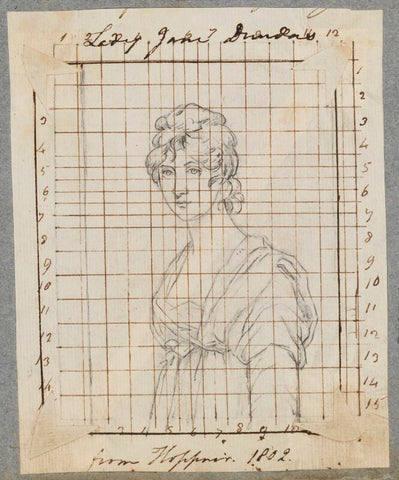 Lady Jane Dundas
1 12
1
2
3 3
4 4
5 5
6 6
7 7
8 8
9
10 10
11 11
12 12
13 13
14 14
15
3 4 5 6 7 8 9 10
from Hoppner. 1802.